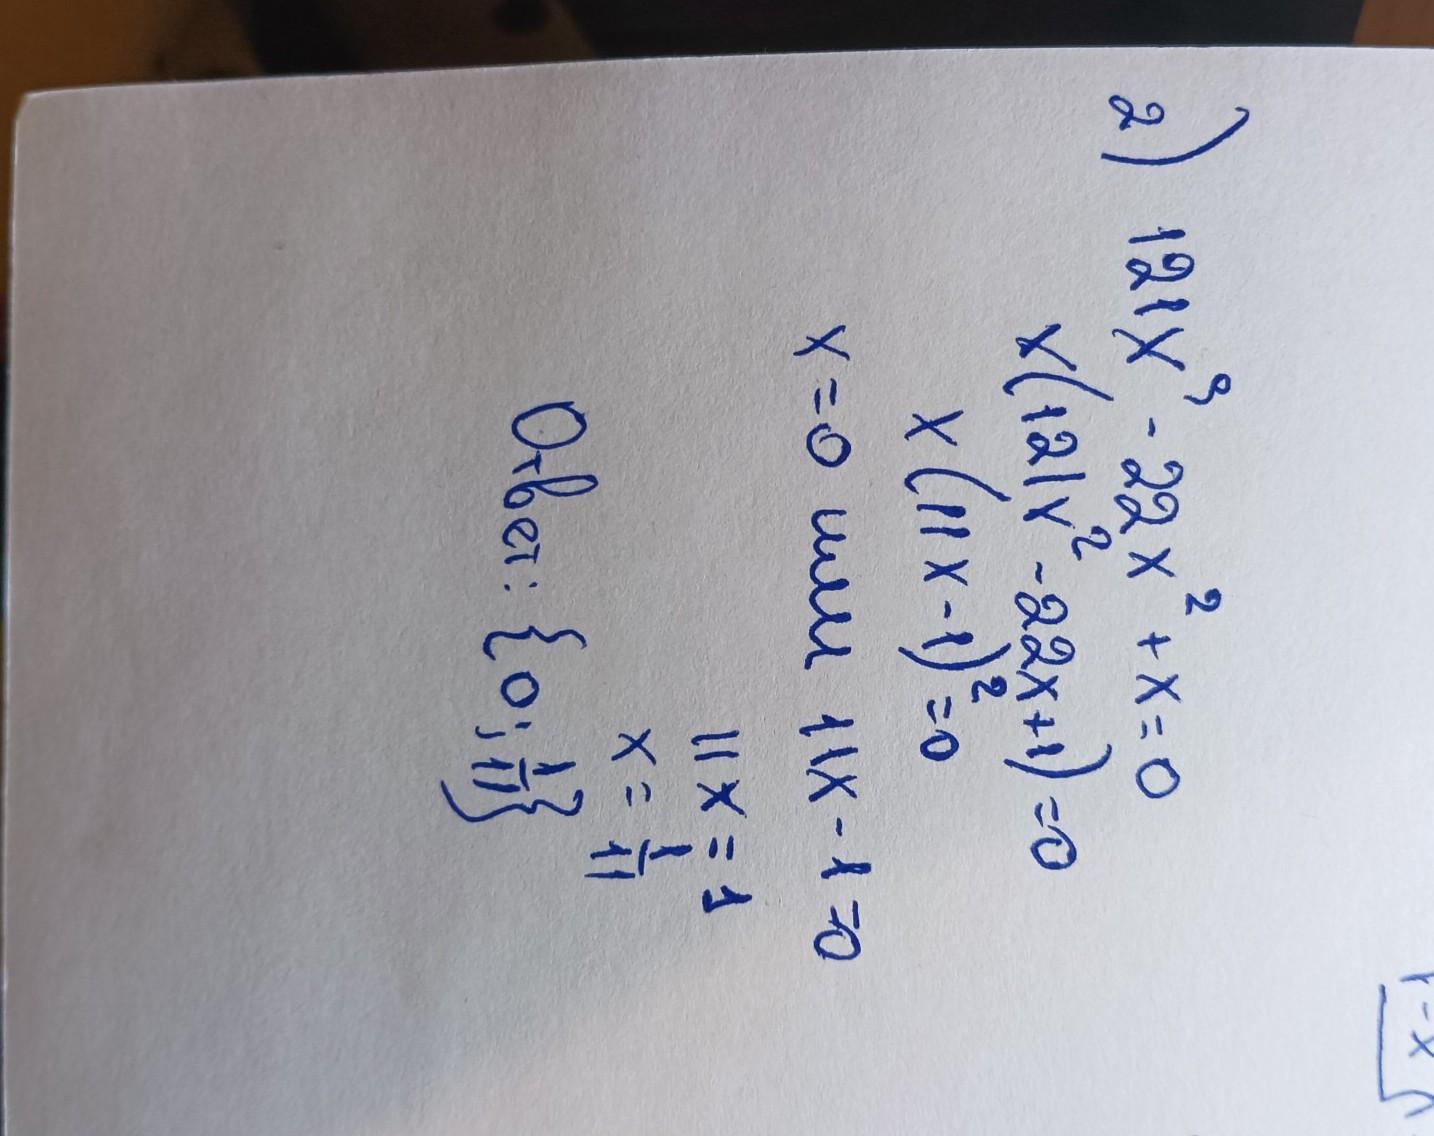 2) 121x³ - 22x² + x = 0
x(121x² - 22x + 1) = 0
x(11x - 1)² = 0
x = 0 или 11x - 1 = 0
11x = 1
x = 1/11
Ответ: {0; 1/11}